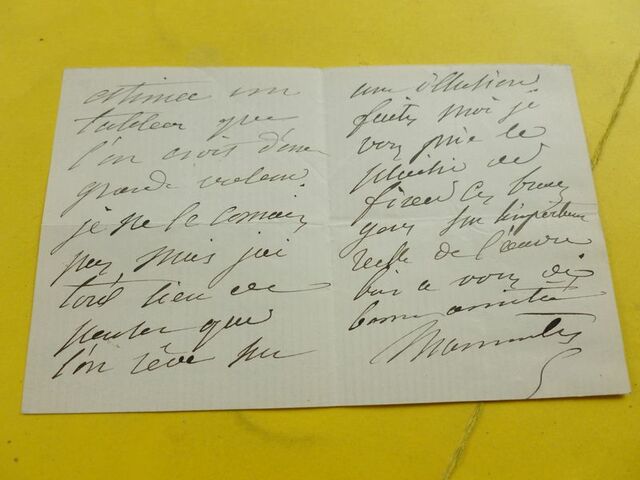 estimer un
tableau que
l'on croit d'une
grande valeur
je ne le connais
pas, mais j'ai
tout lieu de
penser que
l'on rêve sur
une illusion
faites moi je
vous prie le
plaisir de
fixer ces braves
gens sur l'importance
réelle de l'œuvre
à vous
bonne amitié